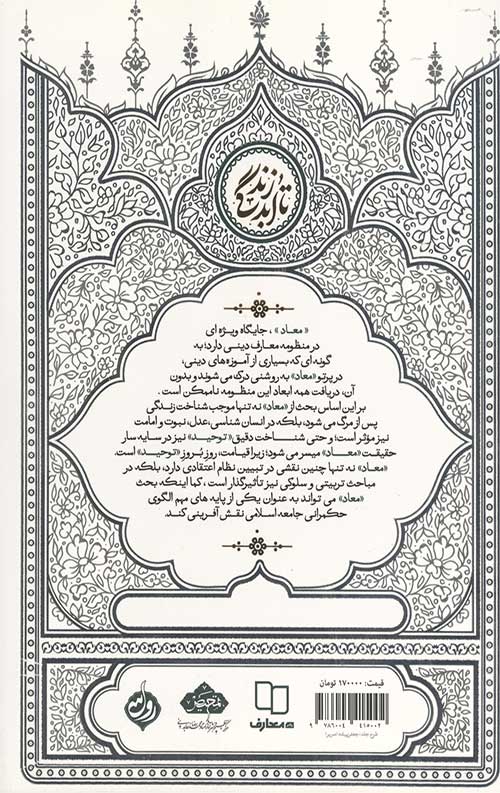 زندگی تا ابد
«معاد»، جایگاه ویژه ای
در منظومه معارف دینی دارد؛ به
گونه ای که بسیاری از آموزه های دینی،
در پرتو «معاد» به روشنی درک می شوند و بدون
آن، دریافت همه ابعاد این منظومه ناممکن است.
بر این اساس بحث از «معاد» نه تنها موجب شناخت زندگی
پس از مرگ می شود، بلکه در انسان شناسی، عدل، نبوت و امامت
نیز مؤثر است؛ و حتی شناخت دقیق «توحید» نیز در سایه سار
حقیقت «معاد» میسر می شود؛ زیرا قیامت، روزِ بُروزِ «توحید» است.
«معاد» نه تنها چنین نقشی در تبیین نظام اعتقادی دارد، بلکه در
مباحث تربیتی و سلوکی نیز تأثیرگذار است، کما اینکه بحث
«معاد» می تواند به عنوان یکی از پایه های مهم الگوی
حکمرانی جامعه اسلامی نقش آفرینی کند.
قیمت: ۱۷۰۰۰۰ تومان
9 786004 415002
معارف